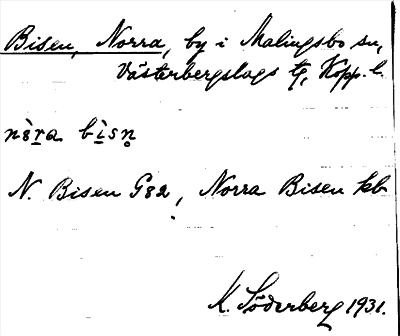 Bisen, Norra, by i Malingsbo sn,
Västerbergslags tg, Kopp. l.
nò̤ra bìsn̥
N. Bisen G82, Norra Bisen kb
K. Söderberg 1931.